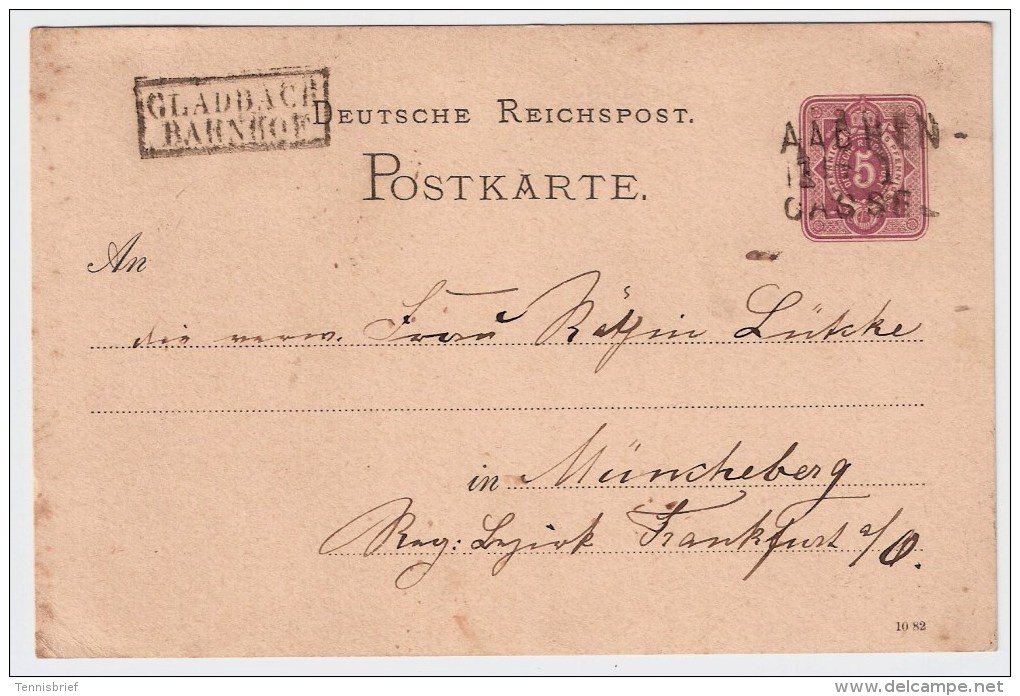 GLADBACH
BAHNHOF
DEUTSCHE REICHSPOST.
POSTKARTE.
AACHEN-
CASSEL
5
An
die verw. Frau Räthin Lütcke
in Müncheberg
Reg: Bezirk Frankfurt a/O.
10 82
Tennisbrief
delcampe.net